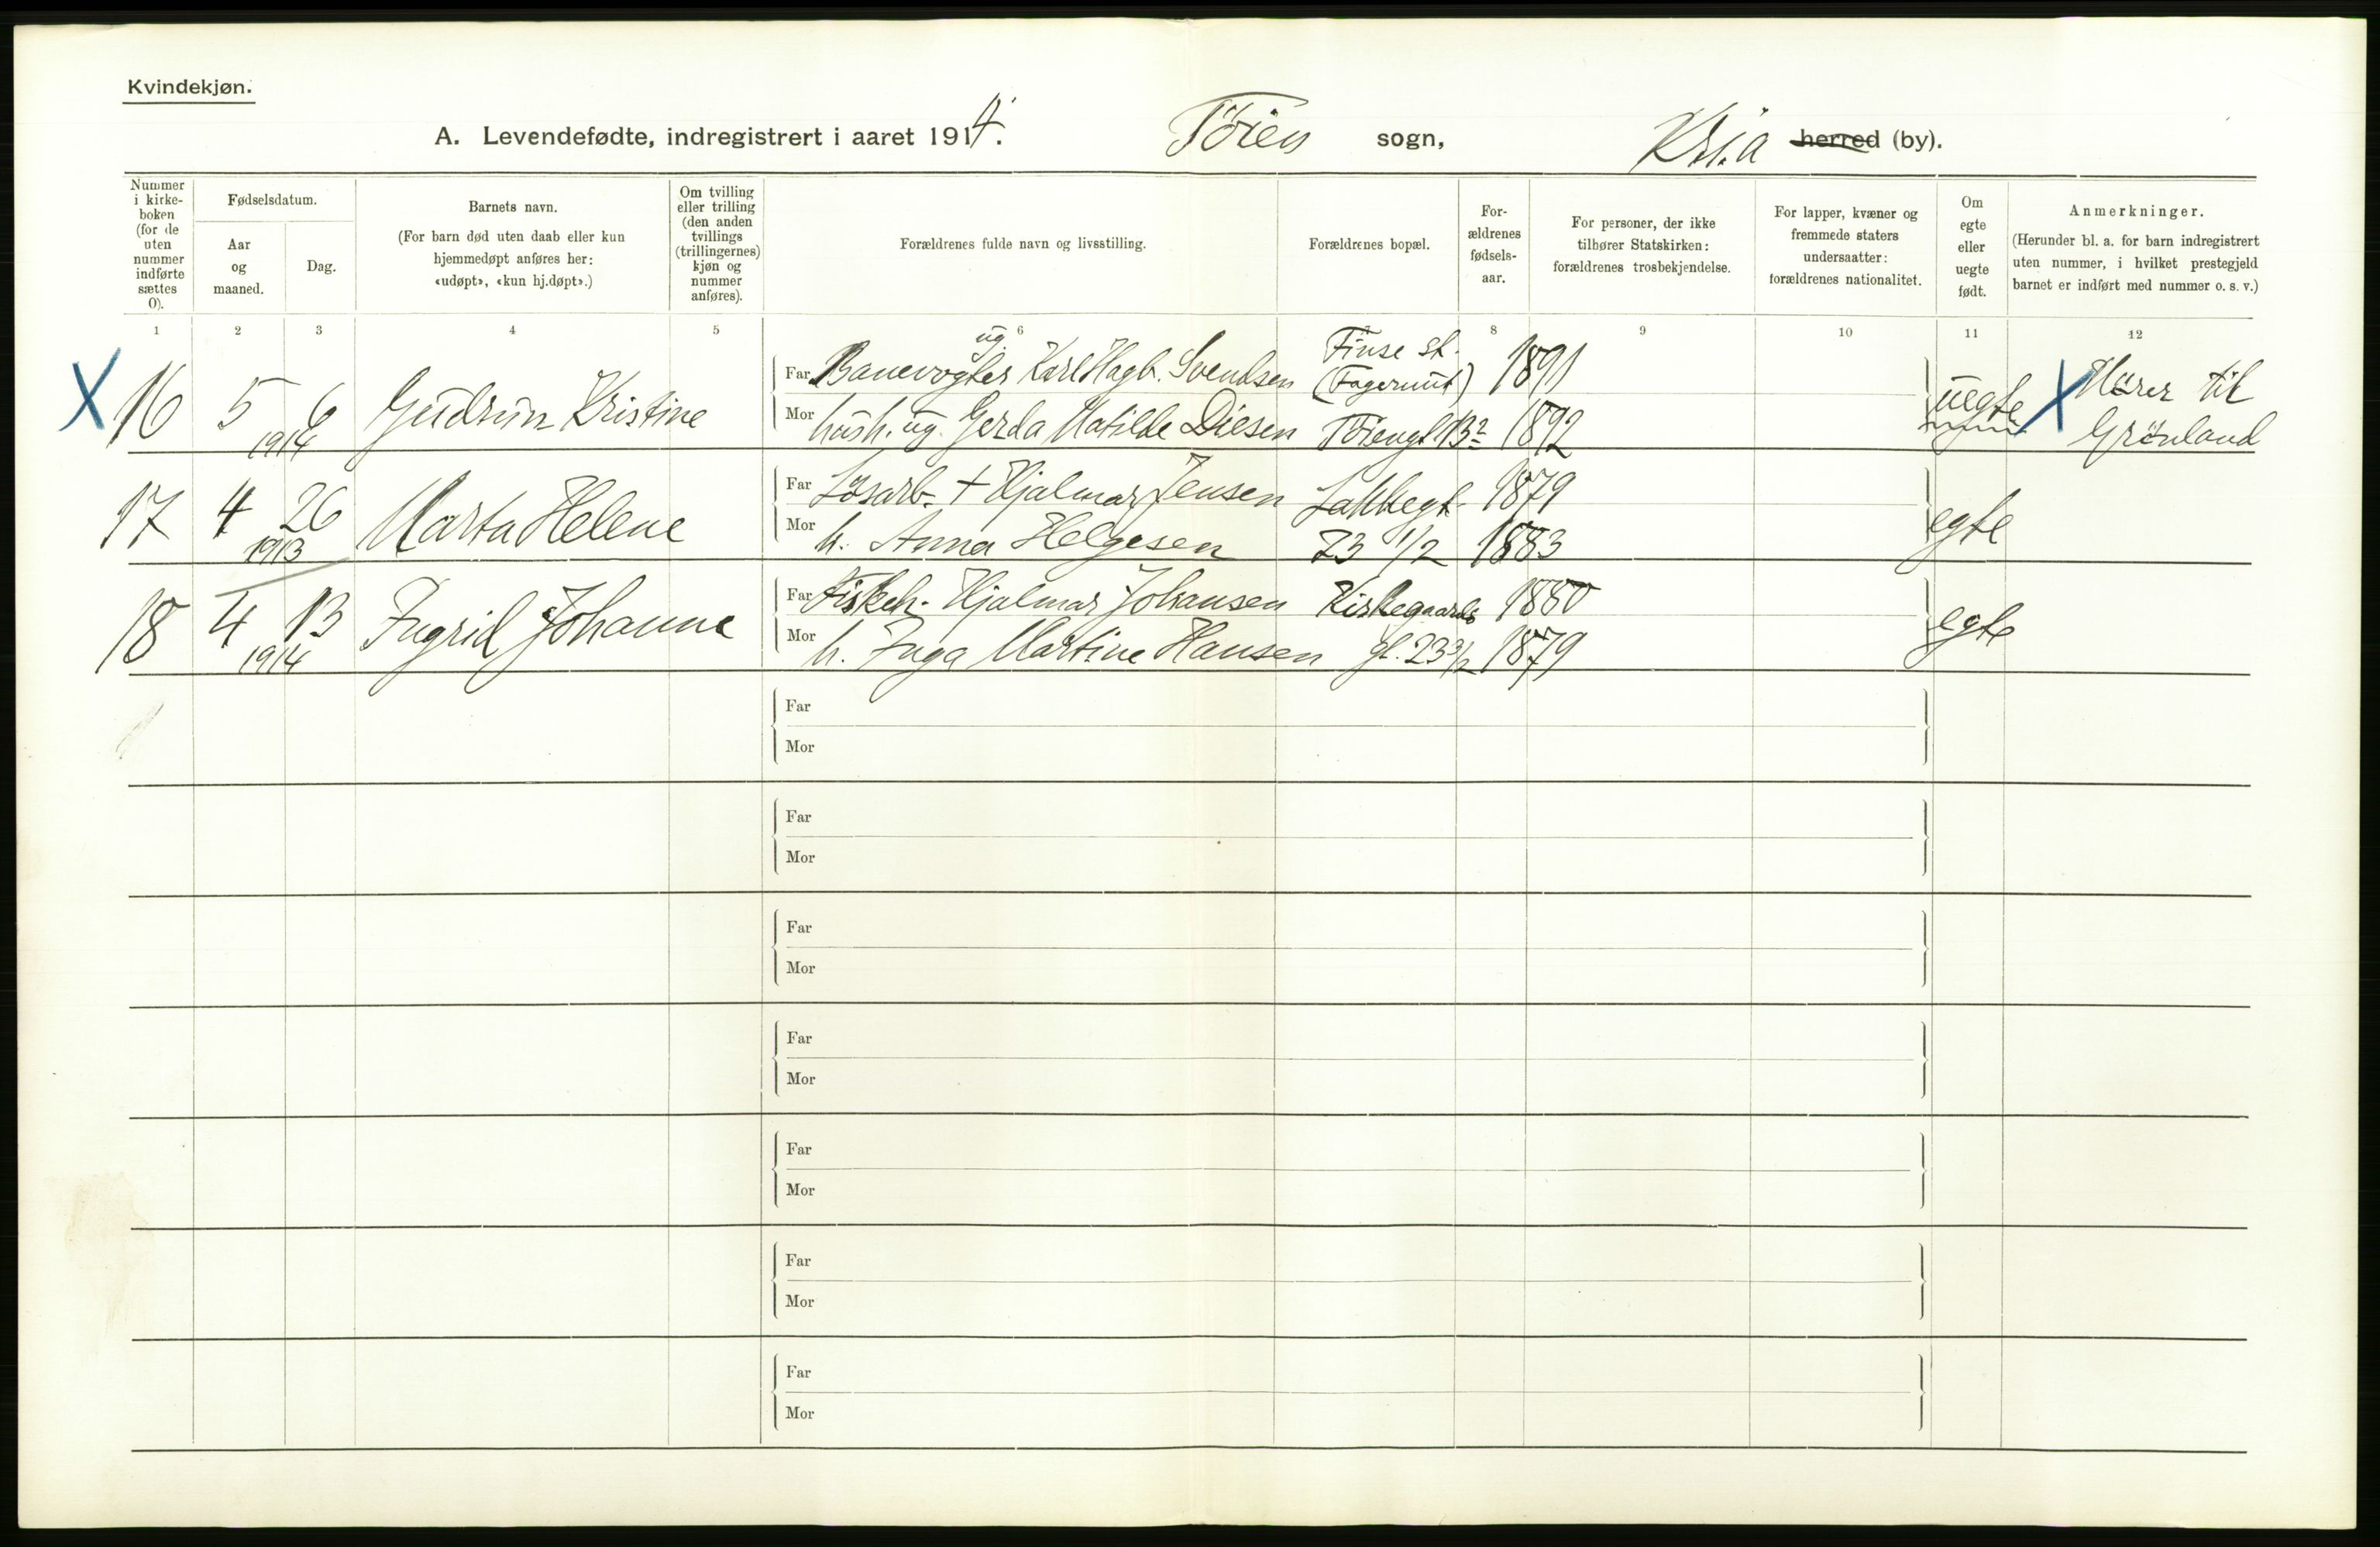 Kvindekjøn.
A. Levendefødte, indregistrert i aaret 1914. Töien sogn, Kr.i.a herred (by).
Nummer i kirke-boken (for de uten nummer indførte sættes 0).
Fødselsdatum.
Aar og maaned.
Dag.
Barnets navn.
(For barn død uten daab eller kun hjemmedøpt anføres her: «udøpt», «kun hj.døpt».)
Om tvilling eller trilling (den anden tvillings (trillingernes) kjøn og nummer anføres).
Forældrenes fulde navn og livsstilling.
Forældrenes bopæl.
For-ældrenes fødsels-aar.
For personer, der ikke tilhører Statskirken: forældrenes trosbekjendelse.
For lapper, kvæner og fremmede staters undersaatter: forældrenes nationalitet.
Om egte eller uegte født.
Anmerkninger.
(Herunder bl. a. for barn indregistrert uten nummer, i hvilket prestegjeld barnet er indført med nummer o. s. v.)
1 2 3 4 5 6 7 8 9 10 11 12
X 16 5 6 1914 Gudrun Kristine
Far Banevogter ug. Karl Hagb. Svendsen Finse st. (Fagernut) 1891
Mor hush. ug. Gerda Matilde Diesen Töiengt 13² 1892
uegte X Hører til Grönland
17 4 26 1913 Marta Helene
Far Løsarb. + Hjalmar Jensen Lakkegt. 1879
Mor h. Anna Helgesen 73 1/2 1883
egte
18 4 13 1914 Ingrid Johanne
Far Fiskeh. Hjalmar Johansen Kirkegaards 1880
Mor h. Inga Martine Hansen gt. 23 1879
egte
Far
Mor
Far
Mor
Far
Mor
Far
Mor
Far
Mor
Far
Mor
Far
Mor